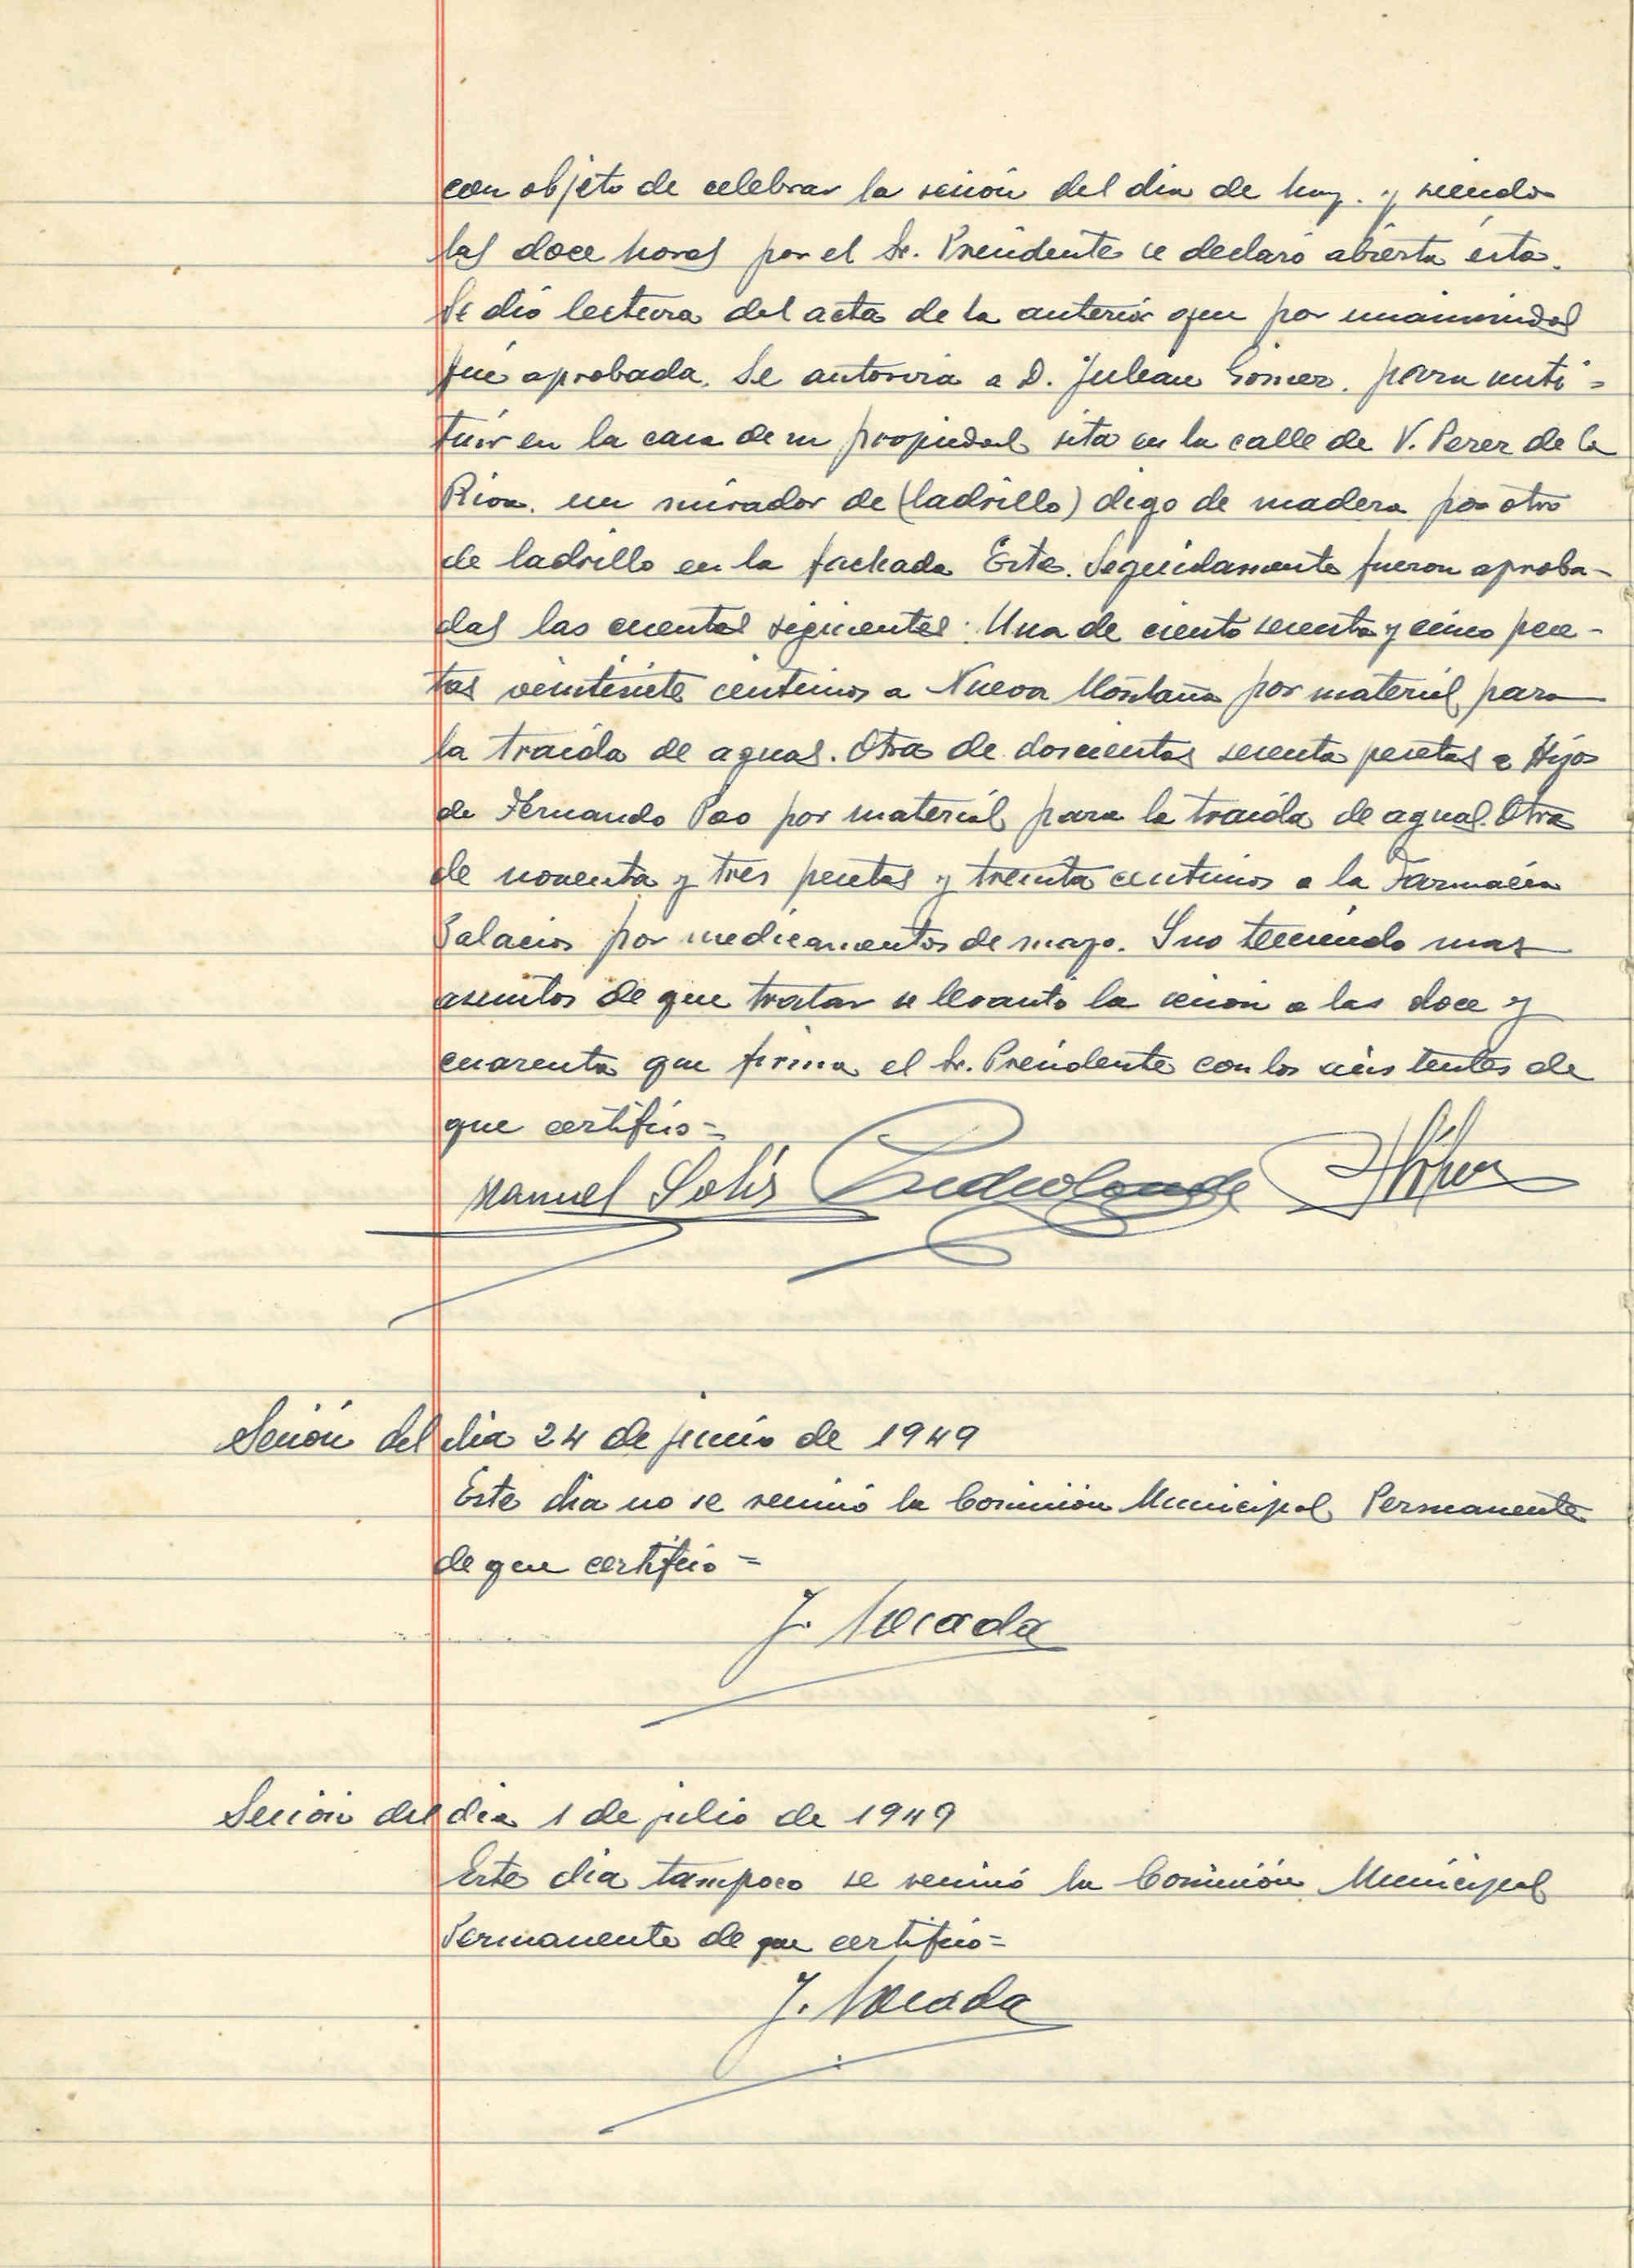 con objeto de celebrar la sesión del dia de hoy. y siendo
las doce horas por el Sr. Presidente se declaró abierta ésta.
Se dió lectura del acta de la anterior que por unanimidad
fué aprobada. Se autoriza a D. Julian Gomez. para susti=
tuir en la casa de su propiedad sita en la calle de V. Perez de la
Riva. un mirador de (ladrillo) digo de madera por otro
de ladrillo en la fachada Este. Seguidamente fueron aproba-
das las cuentas siguientes: Una de ciento sesenta y cinco pese-
tas veintisiete centimos a Nueva Montaña por material para
la traida de aguas. Otra de doscientas sesenta pesetas a Hijos
de Fernando Pao por material para la traida de aguas. Otra
de noventa y tres pesetas y treinta centimos a la Farmacia
Palacios por medicamentos de mayo. Y no teniendo mas
asuntos de que tratar se levantó la sesion a las doce y
cuarenta que firma el Sr. Presidente con los asistentes de
que certifico=
Manuel Solís
Sesión del dia 24 de junio de 1949
Este dia no se reunió la Comisión Municipal Permanente
de que certifico=
J.
Sesión del dia 1 de julio de 1949
Este dia tampoco se reunió la Comisión Municipal
Permanente de que certifico=
J.